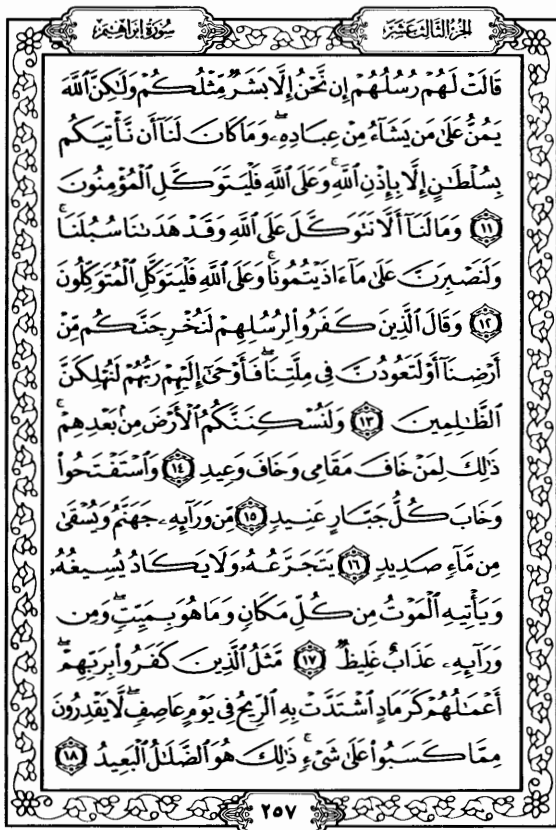 سُورَةُ إِبْرَاهِيمَ
الجُزْءُ الثَّالِثُ عَشَرَ
قَالَتْ لَهُمْ رُسُلُهُمْ إِن نَّحْنُ إِلَّا بَشَرٌ مِّثْلُكُمْ وَلَٰكِنَّ ٱللَّهَ
يَمُنُّ عَلَىٰ مَن يَشَآءُ مِنْ عِبَادِهِۦۖ وَمَا كَانَ لَنَآ أَن نَّأْتِيَكُم
بِسُلْطَٰنٍ إِلَّا بِإِذْنِ ٱللَّهِۚ وَعَلَى ٱللَّهِ فَلْيَتَوَكَّلِ ٱلْمُؤْمِنُونَ
١١ وَمَا لَنَآ أَلَّا نَتَوَكَّلَ عَلَى ٱللَّهِ وَقَدْ هَدَىٰنَا سُبُلَنَاۚ
وَلَنَصْبِرَنَّ عَلَىٰ مَآ ءَاذَيْتُمُونَاۚ وَعَلَى ٱللَّهِ فَلْيَتَوَكَّلِ ٱلْمُتَوَكِّلُونَ
١٢ وَقَالَ ٱلَّذِينَ كَفَرُوا۟ لِرُسُلِهِمْ لَنُخْرِجَنَّكُم مِّنْ
أَرْضِنَآ أَوْ لَتَعُودُنَّ فِى مِلَّتِنَاۖ فَأَوْحَىٰٓ إِلَيْهِمْ رَبُّهُمْ لَنُهْلِكَنَّ
ٱلظَّٰلِمِينَ ١٣ وَلَنُسْكِنَنَّكُمُ ٱلْأَرْضَ مِنۢ بَعْدِهِمْۚ
ذَٰلِكَ لِمَنْ خَافَ مَقَامِى وَخَافَ وَعِيدِ ١٤ وَٱسْتَفْتَحُوا۟
وَخَابَ كُلُّ جَبَّارٍ عَنِيدٍ ١٥ مِّن وَرَآئِهِۦ جَهَنَّمُ وَيُسْقَىٰ
مِن مَّآءٍ صَدِيدٍ ١٦ يَتَجَرَّعُهُۥ وَلَا يَكَادُ يُسِيغُهُۥ
وَيَأْتِيهِ ٱلْمَوْتُ مِن كُلِّ مَكَانٍ وَمَا هُوَ بِمَيِّتٍۖ وَمِن
وَرَآئِهِۦ عَذَابٌ غَلِيظٌ ١٧ مَّثَلُ ٱلَّذِينَ كَفَرُوا۟ بِرَبِّهِمْۖ
أَعْمَٰلُهُمْ كَرَمَادٍ ٱشْتَدَّتْ بِهِ ٱلرِّيحُ فِى يَوْمٍ عَاصِفٍۖ لَّا يَقْدِرُونَ
مِمَّا كَسَبُوا۟ عَلَىٰ شَىْءٍۚ ذَٰلِكَ هُوَ ٱلضَّلَٰلُ ٱلْبَعِيدُ ١٨
٢٥٧